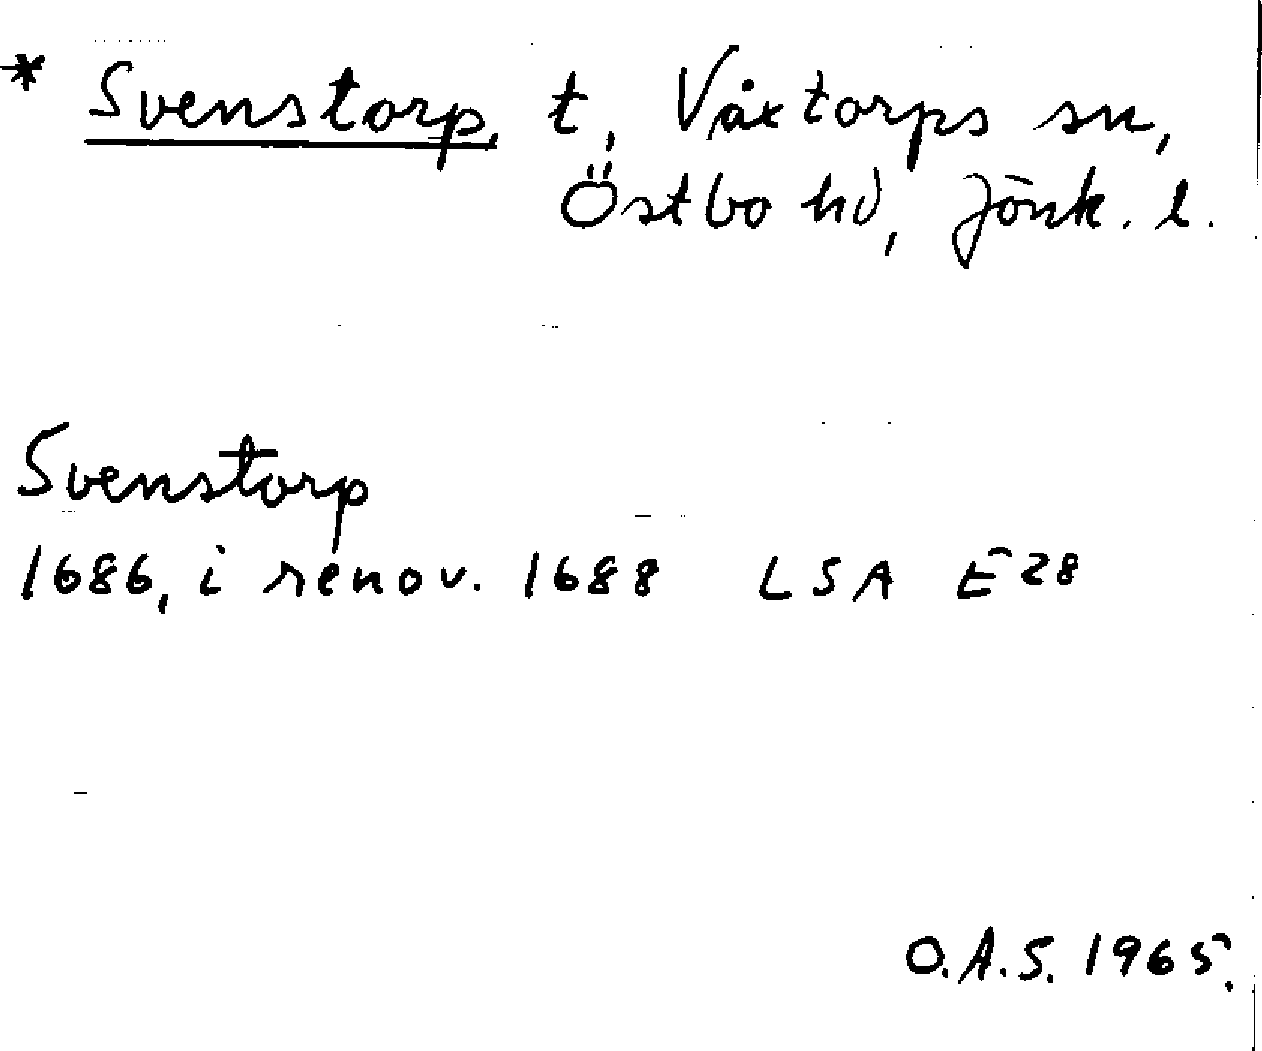 * Svenstorp, t, Våxtorps sn,
Östbo hd, Jönk. l.
Svenstorp
1686, i renov. 1688 LSA E28
O.A.S. 1965.